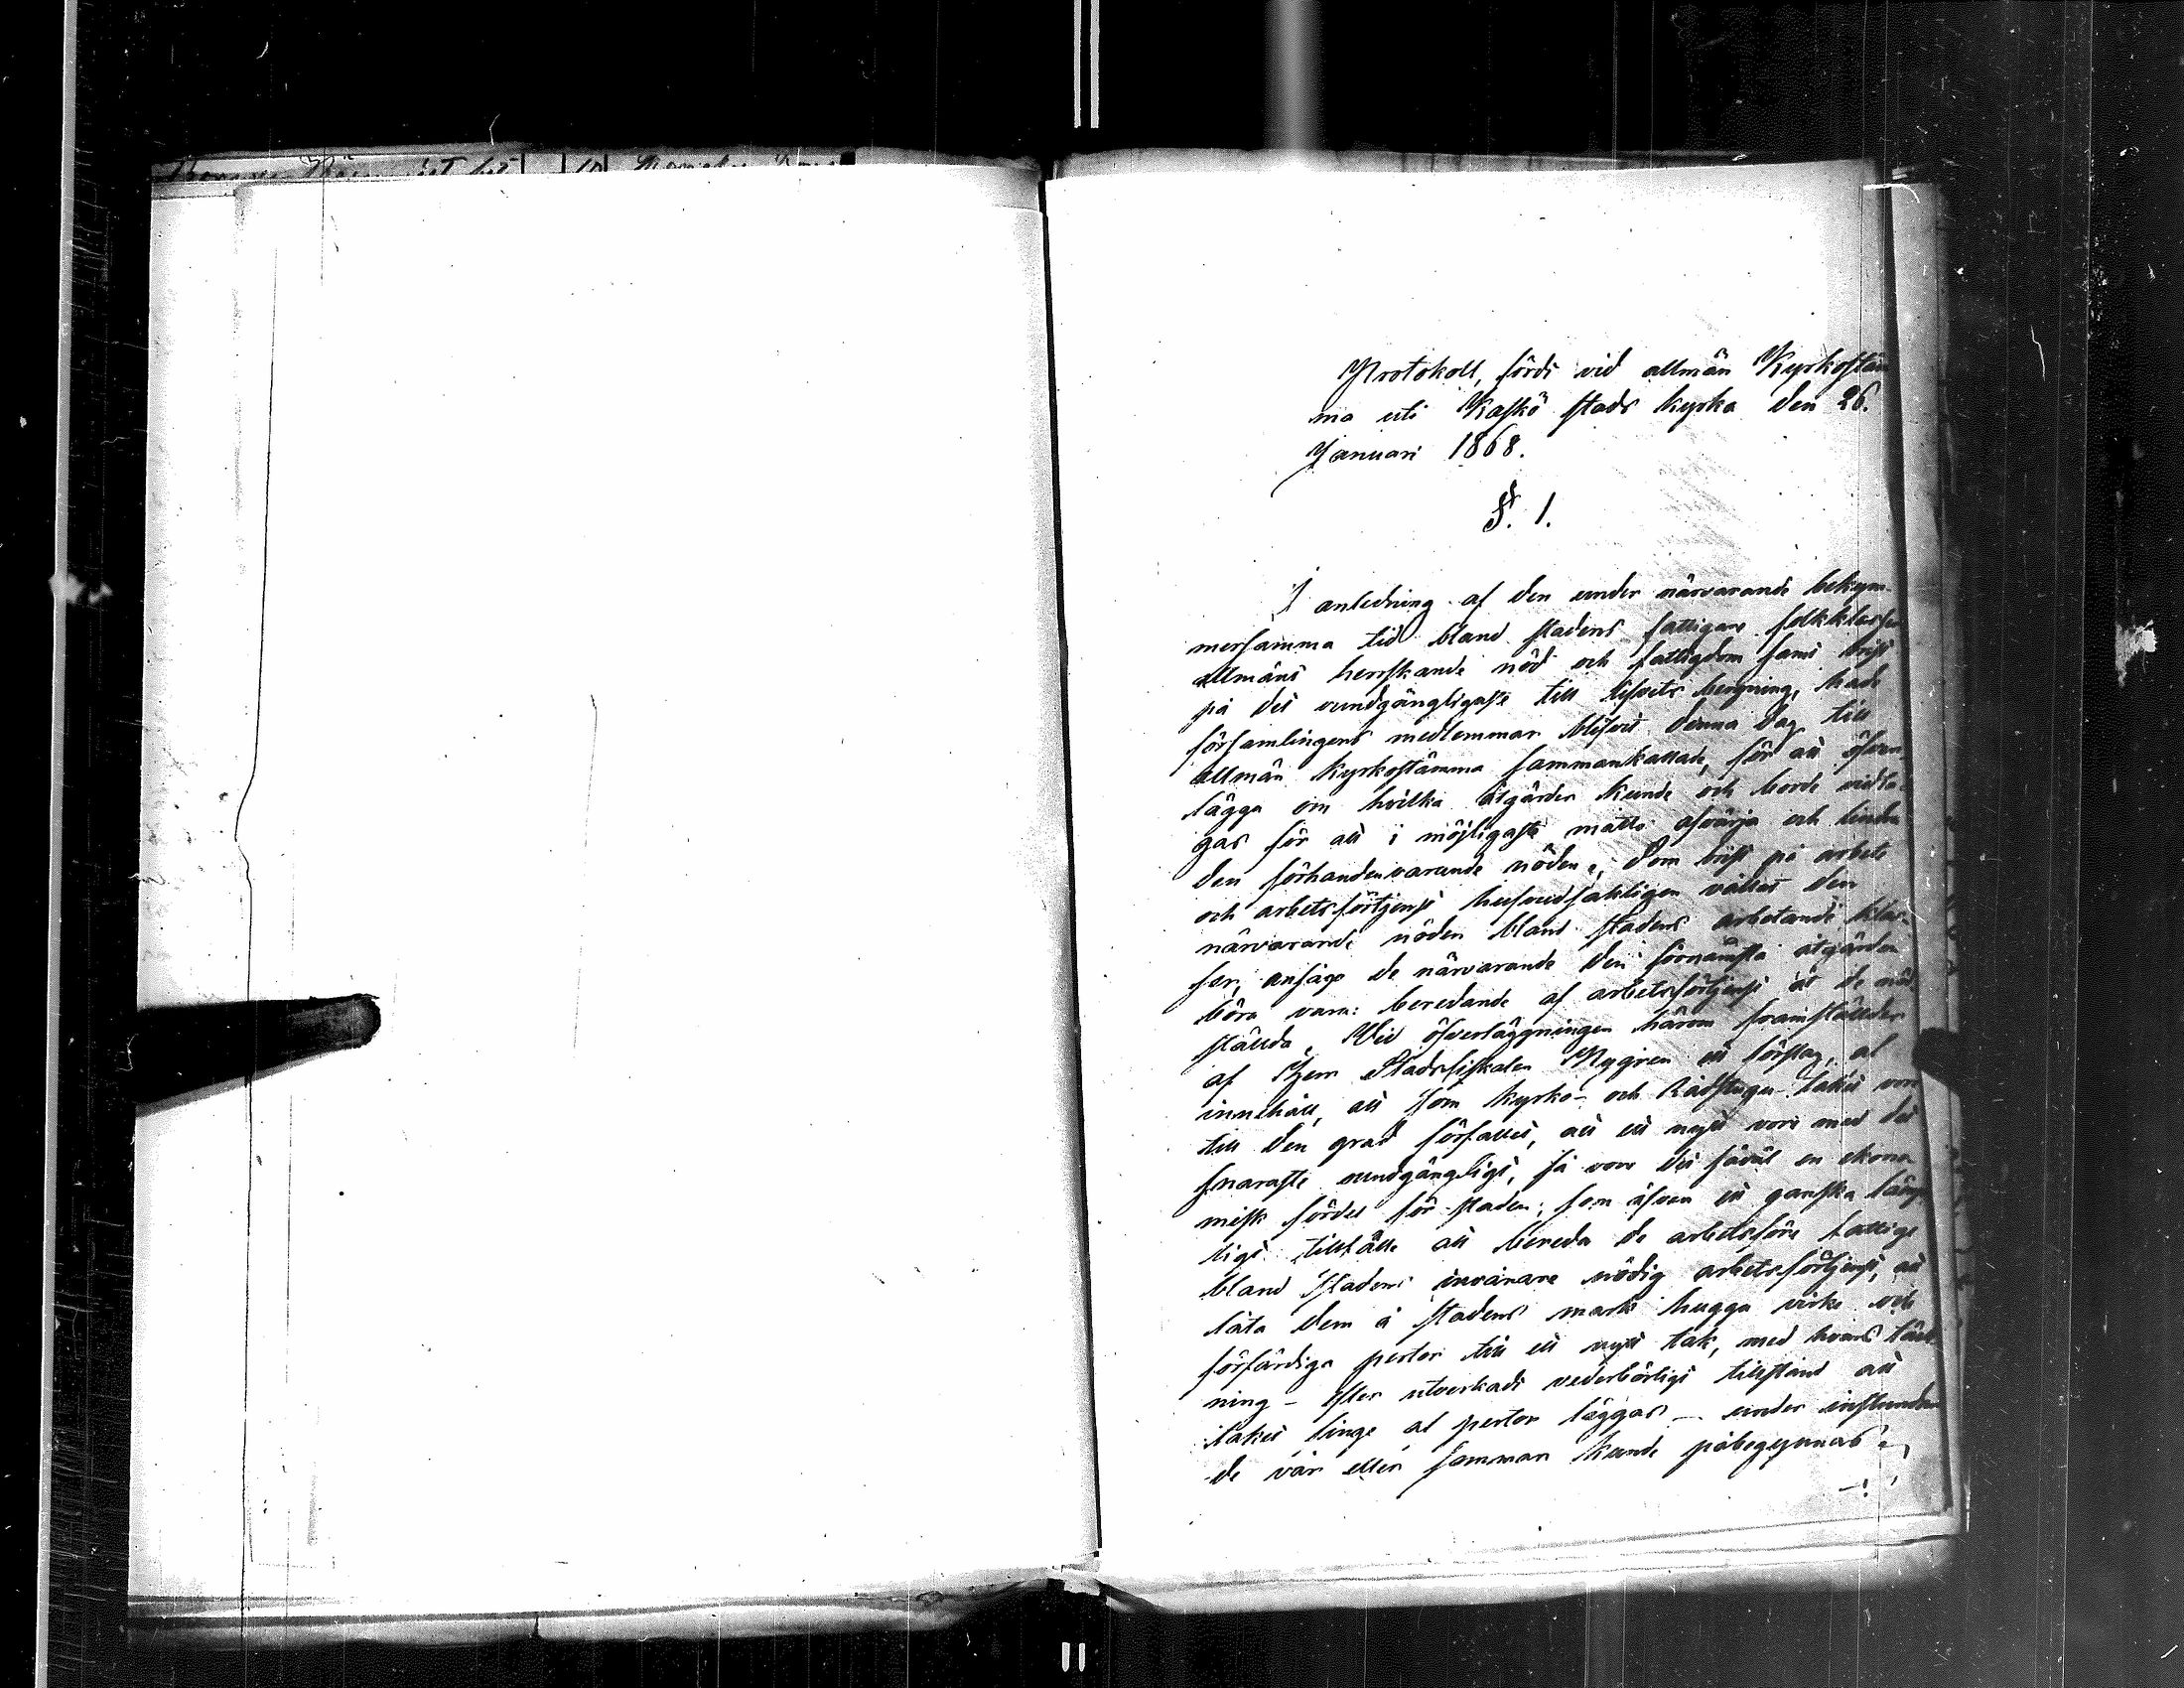 Protokoll, fördt vid allmän Kyrkostäm
ma uti Kaskö stads kyrka den 26.
Januari 1868.
§. 1.
I anledning af den under närvarande bekym-
mersamma tid bland stadens fattigare folkklasser
allmänt herrskande nöd och fattigdom samt brist
på det oundgängligaste till lifvets bergning, hade
församlingens medlemmar blifvit denna dag till
allmän kyrkostämma sammankallade, för att öfver-
lägga om hvilka åtgärder kunde och borde vidta-
gas för att i möjligaste måtto afvärja och lindra
den förhandenvarande nöden. Som brist på arbete
och arbetsförtjenst hufvudsakligen vållat den
närvarande nöden bland stadens arbetande klas-
ser, ansågo de närvarande den förnämsta åtgärden
böra vara: beredande af arbetsförtjenst åt de nöd
ställda. Vid öfverläggningen härom framställdes
af Herr Stadsfiskalen Nygren ett förslag, af
innehåll, att som kyrko- och Rådstugu-taket vore
till den grad förfallet, att ett nytt vore med det
snaraste oundgängligt, så vore det såväl en ekono
misk fördel för staden, som äfven ett ganska lämp
ligt tillfälle att bereda de arbetsföre fattige
bland stadens invånare nödig arbetsförtjenst, att
låta dem å stadens mark hugga virke och
förfärdiga pertor till ett nytt tak, med hvars täck
ning - efter utverkadt vederbörligt tillstånd att
taket finge af pertor läggas - under instundan
de vår eller sommar kunde påbegynnas.